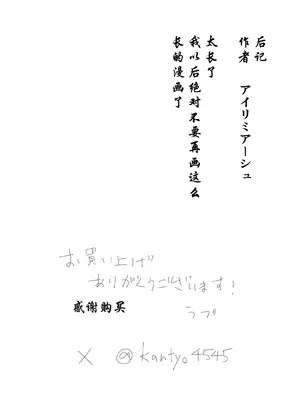 后记
作者 アイリミアーシュ
太长了
我以后绝对不要再画这么
长的漫画了
お買い上げ
ありがとうございます!
感谢购买
X @kantyo4545